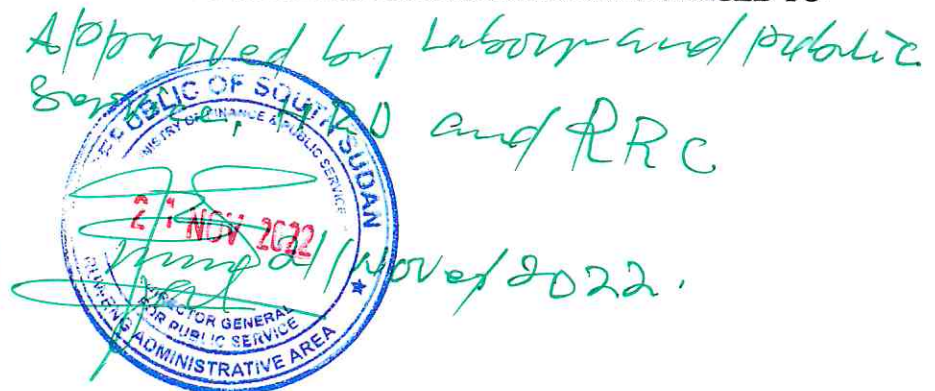 Approved by Labour and public
Service, HRD and RRC
REPUBLIC OF SOUTH SUDAN
MINISTRY OF FINANCE & PUBLIC SERVICE
21 NOV 2022
21/Nov/2022.
DIRECTOR GENERAL
FOR PUBLIC SERVICE
RUWENG ADMINISTRATIVE AREA